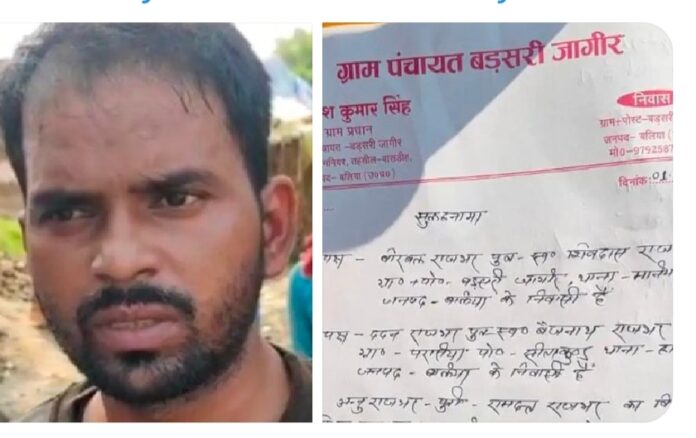 ग्राम पंचायत बड़सरी जागीर
श कुमार सिंह
ग्राम प्रधान
यत -बड़सरी जागीर
नियर, तहसील-बांसडीह,
पद- बलिया (उ०प्र०)
निवास
ग्राम+पोस्ट-बड़सरी
जनपद- बलिया (
मो0-9792587
दिनांक:01
सुलहनामा
पक्ष - राजभर पुत्र - स्व० शिवदास राज
ग्रा० +पो० - बड़सरी जागीर, थाना - मनिय
जनपद - बलिया के निवासी हैं
पक्ष - ददन राजभर पुत्र स्व० बैजनाथ राजभर
ग्रा० - पो० - थाना -
जनपद - बलिया के निवासी हैं
राजभर - पुत्री - रामदत्त राजभर का वि